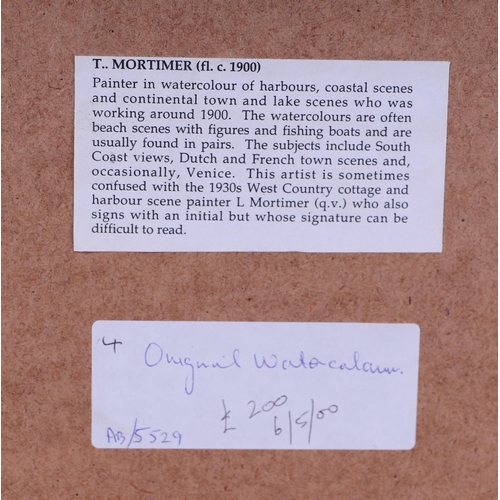 T.. MORTIMER (fl. c. 1900)
Painter in watercolour of harbours, coastal scenes
and continental town and lake scenes who was
working around 1900. The watercolours are often
beach scenes with figures and fishing boats and are
usually found in pairs. The subjects include South
Coast views, Dutch and French town scenes and,
occasionally, Venice. This artist is sometimes
confused with the 1930s West Country cottage and
harbour scene painter L Mortimer (q.v.) who also
signs with an initial but whose signature can be
difficult to read.
4 Original Watercolour.
£ 200
6/5/00
AB/5529